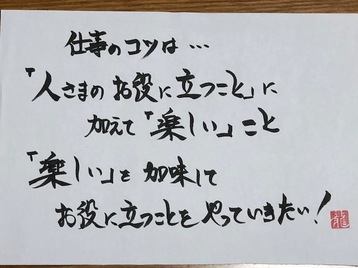 仕事のコツは…
「人さまのお役に立つこと」に
加えて「楽しい」こと
「楽しい」を加味して
お役に立つことをやっていきたい!